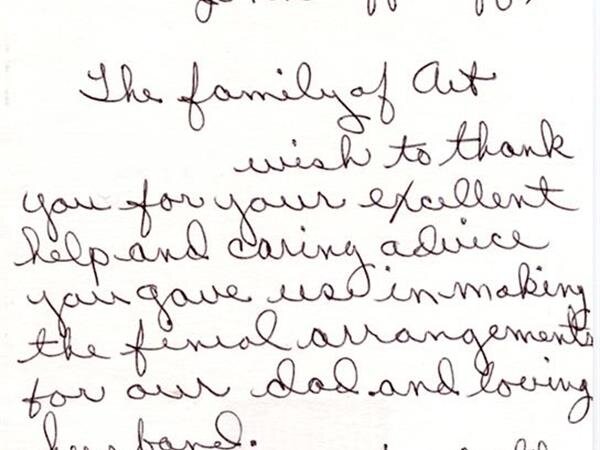 The family of Art
wish to thank
you for your excellent
help and caring advice
you gave us in making
the finial arrangements
for our dad and loving
husband.